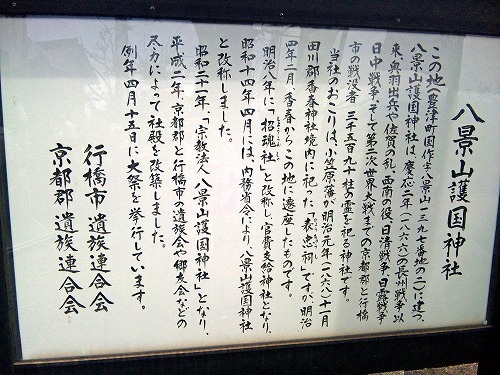 八景山護国神社
この地(豊津町国作字八景山一三九七番地の二)に建つ、
八景山護国神社は、慶応二年(一八六六)の長州戦争以
来、奥羽出兵や佐賀の乱、西南の役、日清戦争、日露戦争
日中戦争、そして第二次世界大戦までの京都郡と行橋
市の戦没者三千五百九十柱の霊を祀る神社です。
当社のおこりは、小笠原藩が明治元年(一八六八)十一月
田川郡香春神社境内に祀った「表忠祠」ですが、明治
四年二月香春からこの地に遷座したものです。
明治八年に「招魂社」と改称し、官費支給神社となり、
昭和十四年四月には、内務省令により、八景山護国神社
と改称しました。
昭和二十一年、「宗教法人八景山護国神社」となり、
平成二年、京都郡と行橋市の遺族会や郷友会などの
尽力によって社殿を改築しました。
例年四月十五日に大祭を挙行しています。
行橋市遺族連合会
京都郡遺族連合会